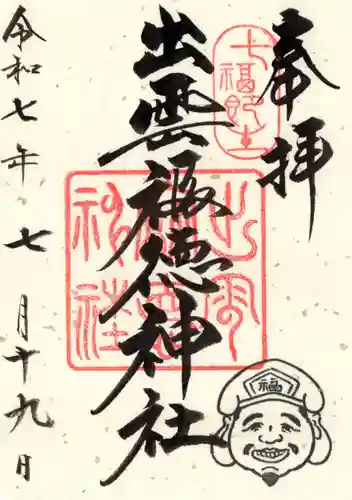 奉拝
七福即生
出雲福徳神社
出雲
神社
福
令和七年七月十九日